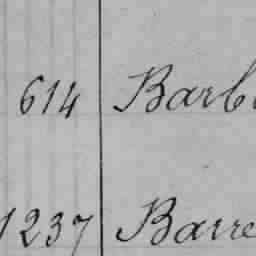 614 Barb
1237 Barre